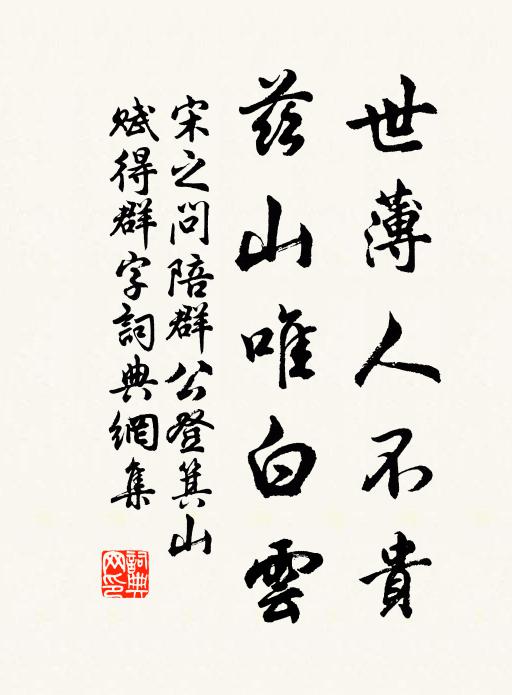 世薄人不貴
茲山唯白雲
宋之問陪群公登箕山
賦得群字詞典網集
詞典网印